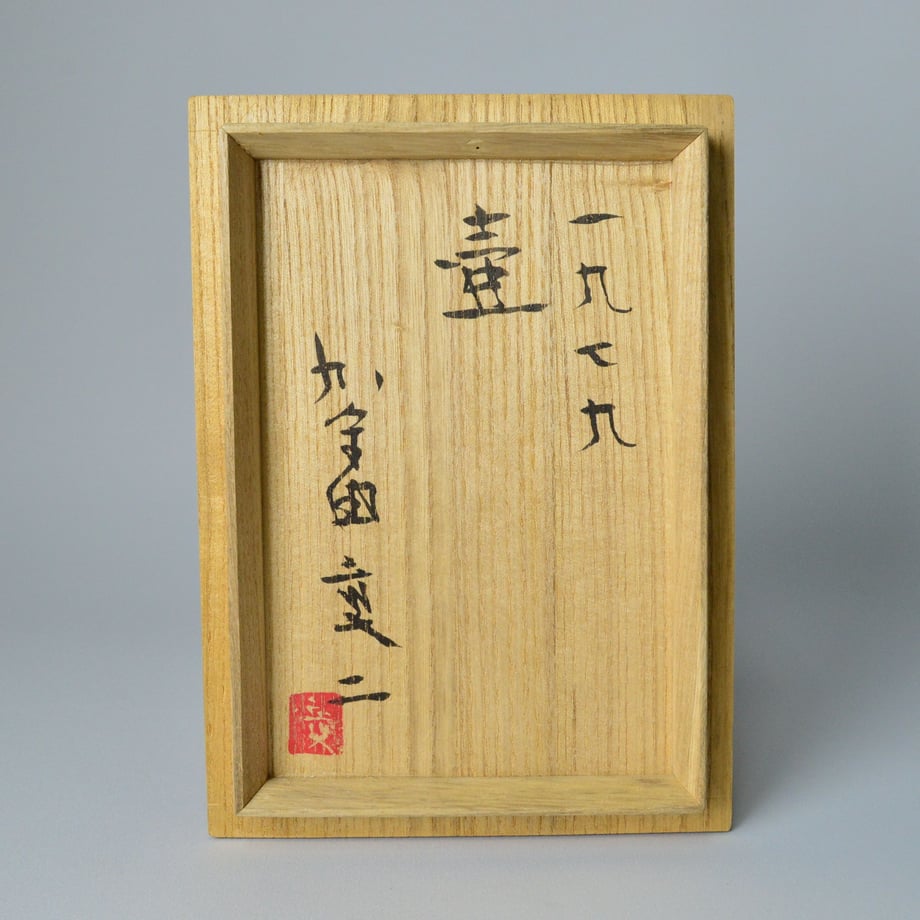 一九七九
壷
加守田章二
章